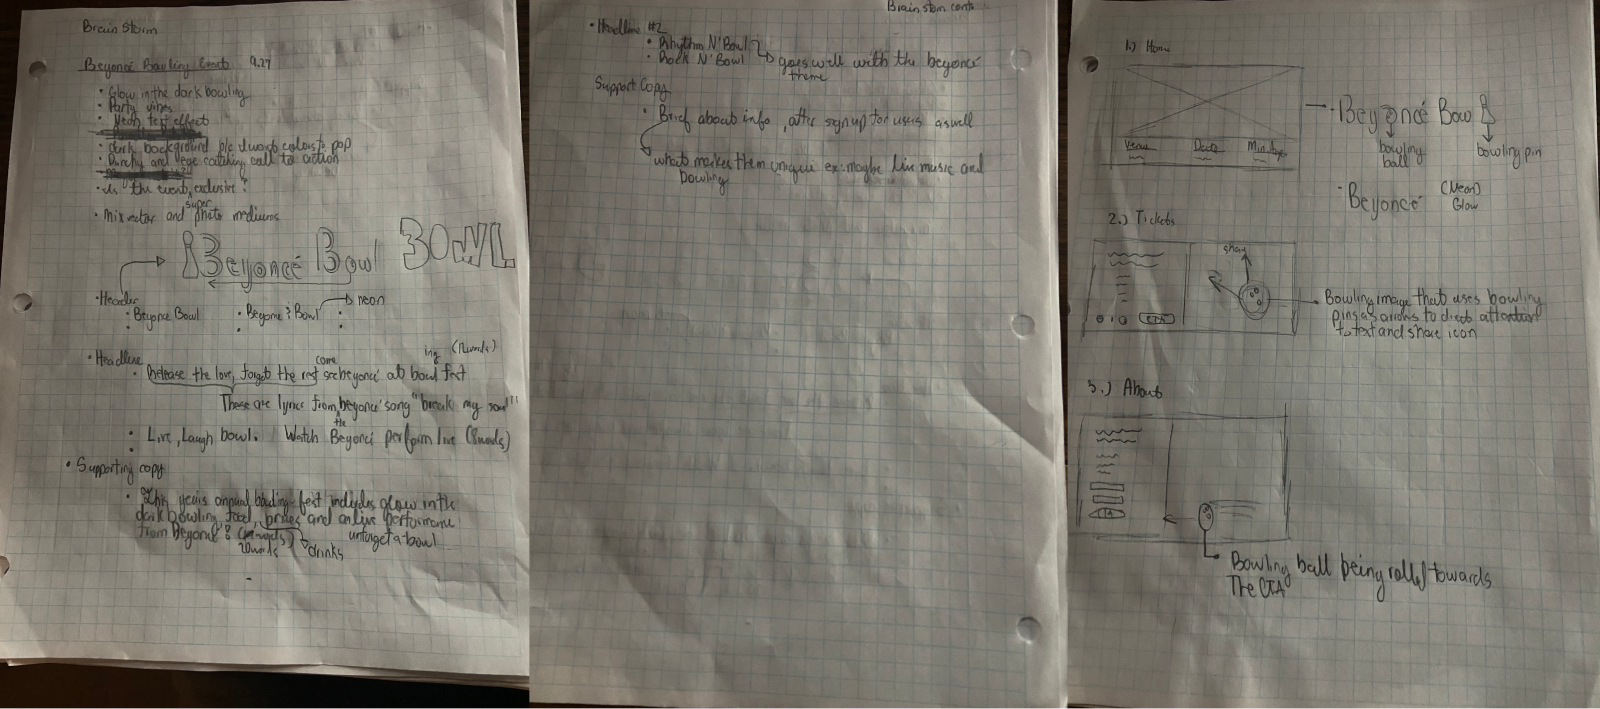 Brain Storm
Beyoncé Bowling Event 9.27
• Glow in the dark bowling
• Party vibes
• Neon text effect
• dark background b/c I want colors to pop
• Punchy and eye catching call to action
• Is the event exclusive?
super
• Mix vector and photo mediums
Beyoncé Bowl BOWL
• Header
• Beyonce Bowl
• Beyonce Bowl
neon
• Headline
come
ing
• Release the love, forget the rest see beyoncé at bowl fest
These are lyrics from beyonce' song "break my soul"
the
• Live, Laugh bowl. Watch Beyoncé perform live (8 words)
• Supporting copy
• This years annual bowling fest includes glow in the
dark bowling, food, prizes and live performance
from Beyoncé
unforget-a-bowl
drinks
Brain storm cont.
• Headline #2
• Rhythm N' Bowl
• Rock N' Bowl
goes well with the beyoncé
theme
Support Copy
• Brief about info, after signup for users aswell
what makes them unique ex: maybe live music and
bowling
1.) Home
Venue Date Min. Age
Beyoncé Bowl
bowling
ball
bowling pin
• Beyoncé (Neon)
Glow
2.) Tickets
share
CTA
Bowling image that uses bowling
pins as arrows to direct attention
to text and share icon
3.) About
CTA
Bowling ball being rolled towards
The CTA